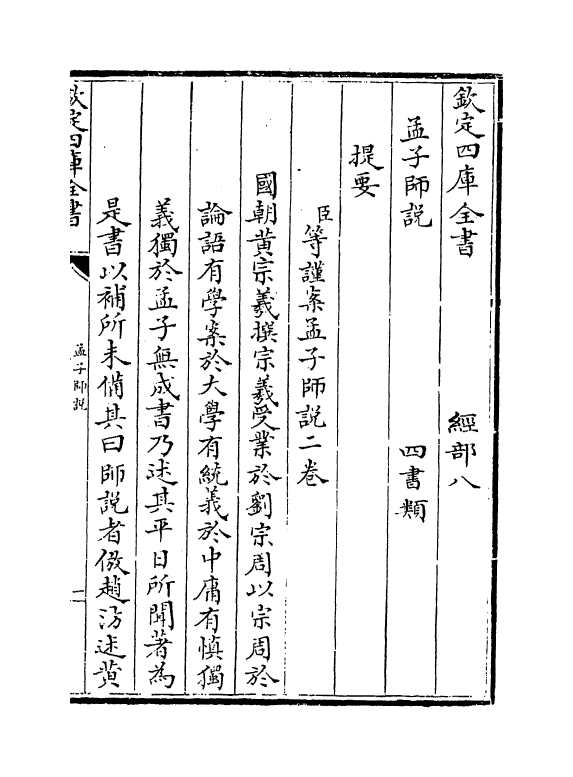 欽定四庫全書 經部八
孟子師説 四書類
提要
臣等謹案孟子師説二卷
國朝黄宗羲撰宗羲受業於劉宗周以宗周於
論語有學案於大學有統義於中庸有慎獨
義獨於孟子無成書乃述其平日所聞著為
是書以補所未備其曰師説者倣趙汸述黄
欽定四庫全書
孟子師説
一